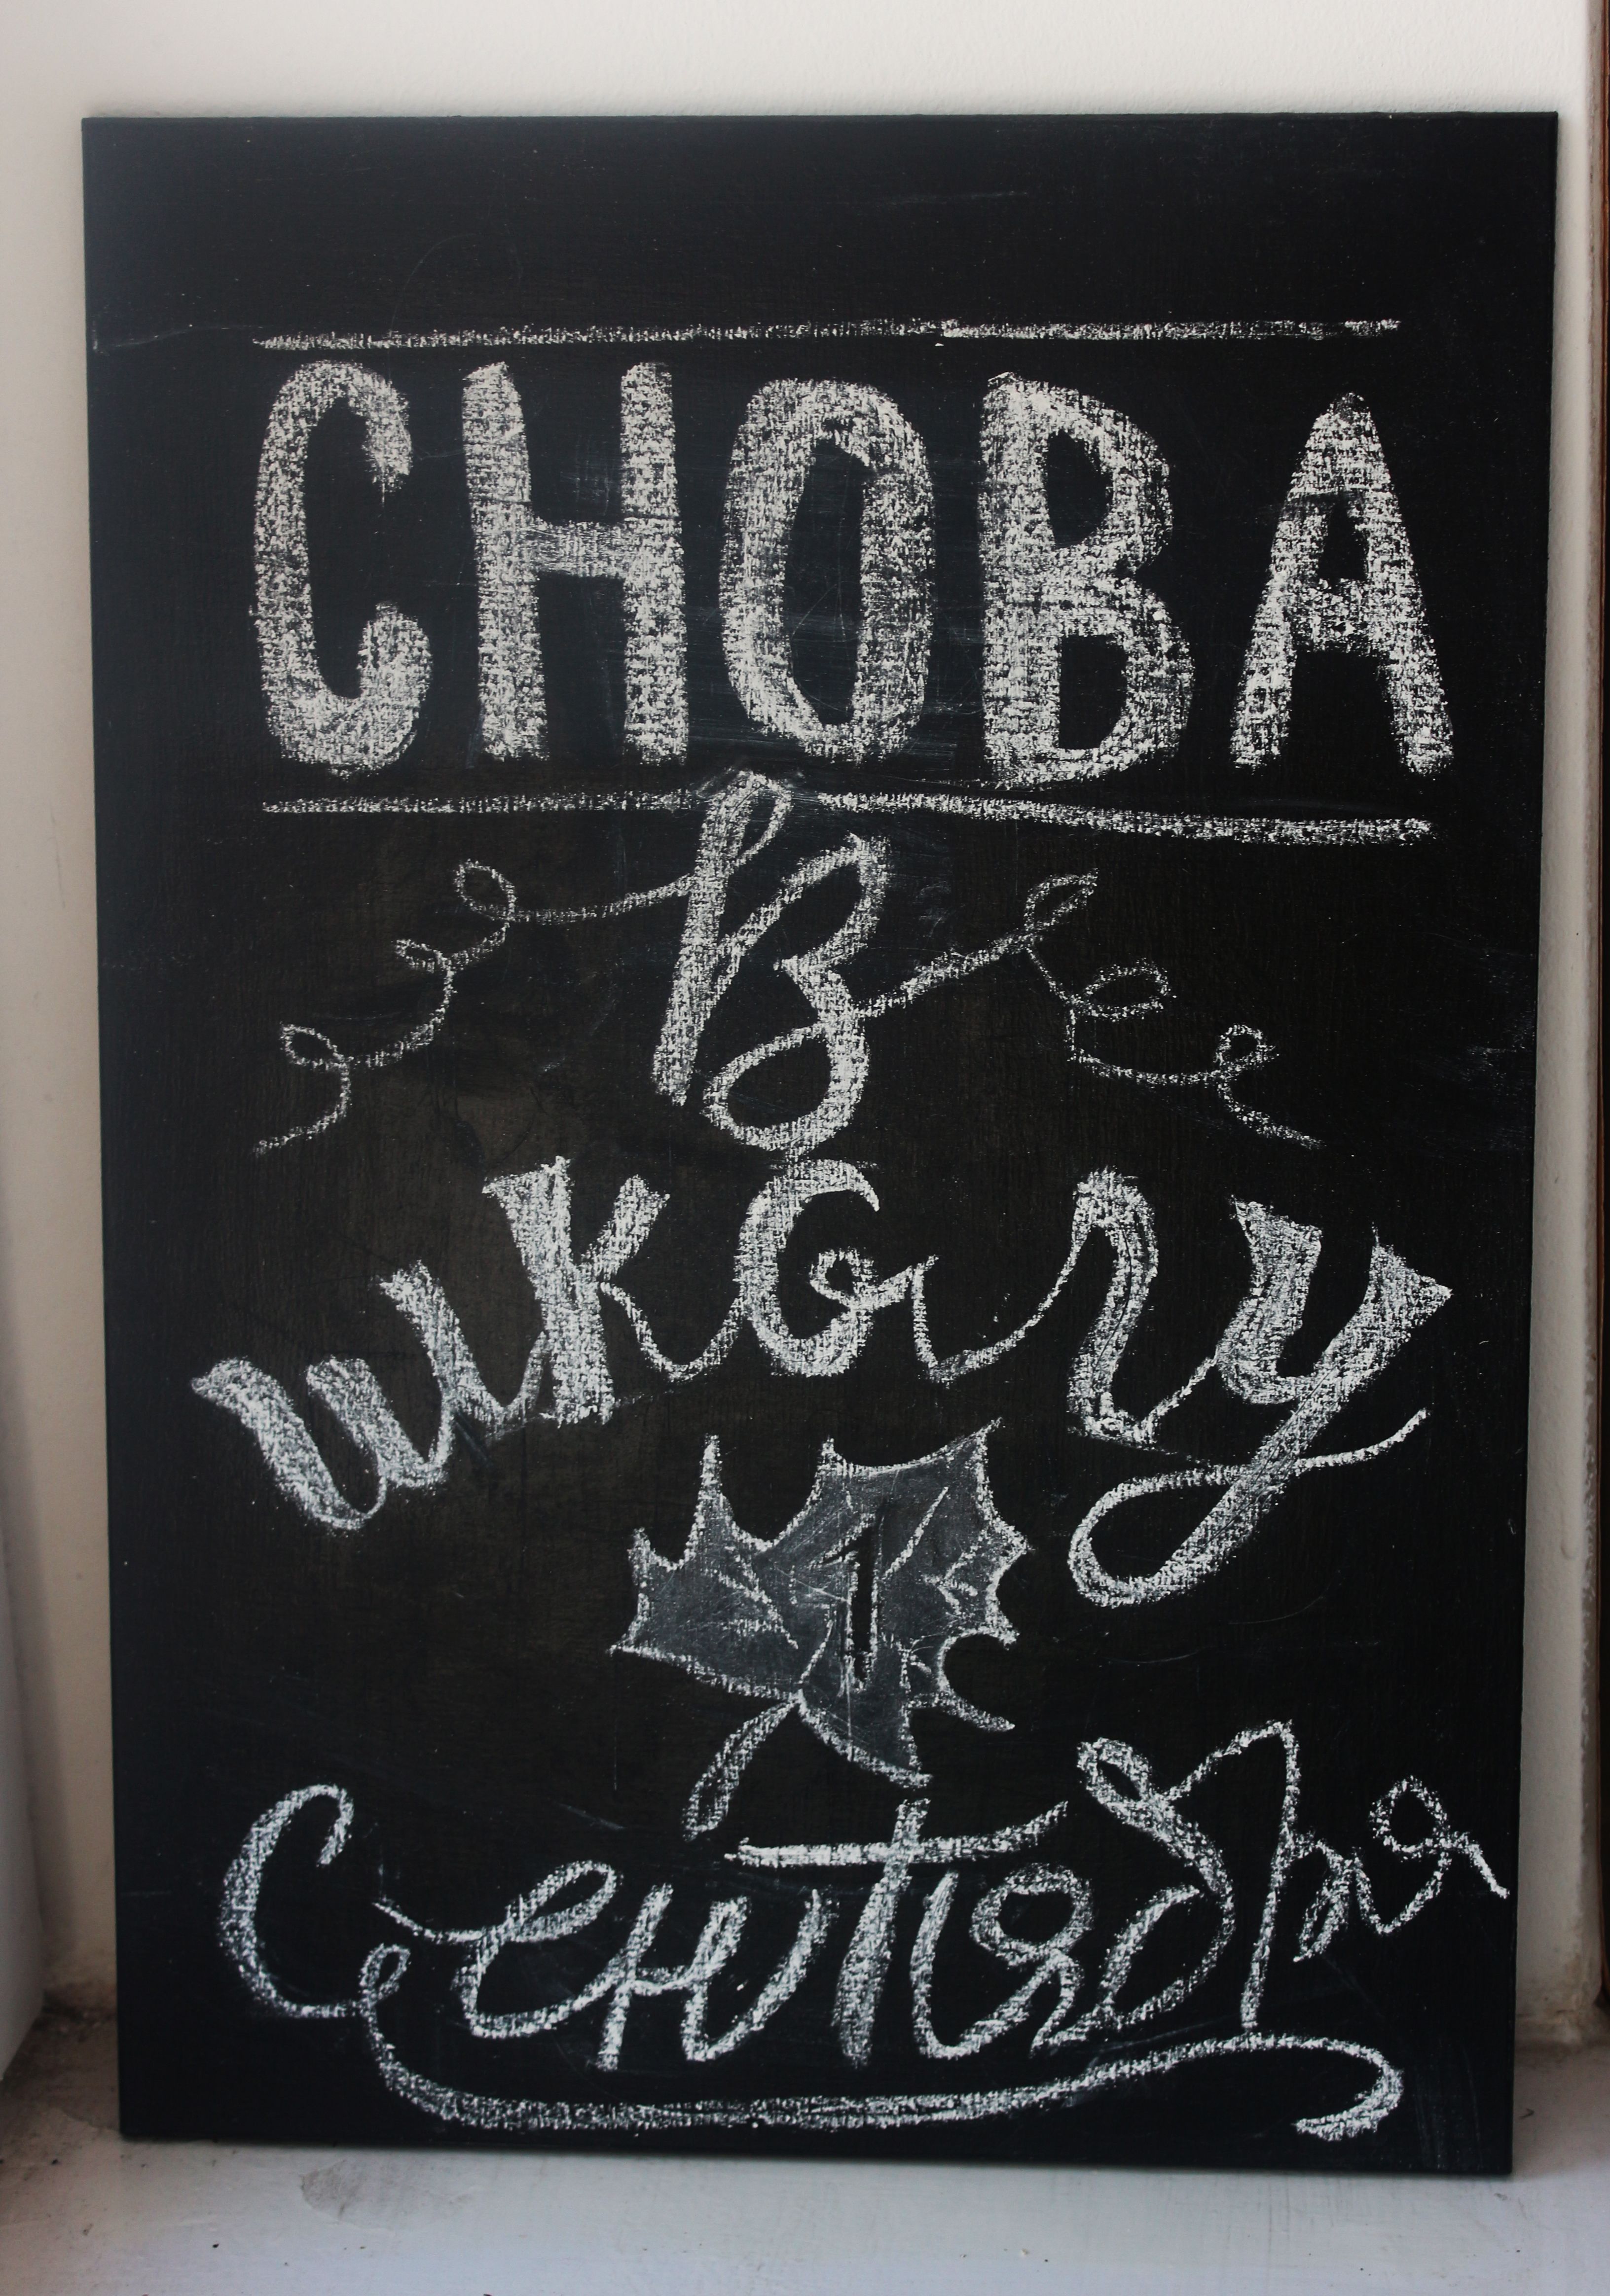 СНОВА
В
школу
1
Сентября